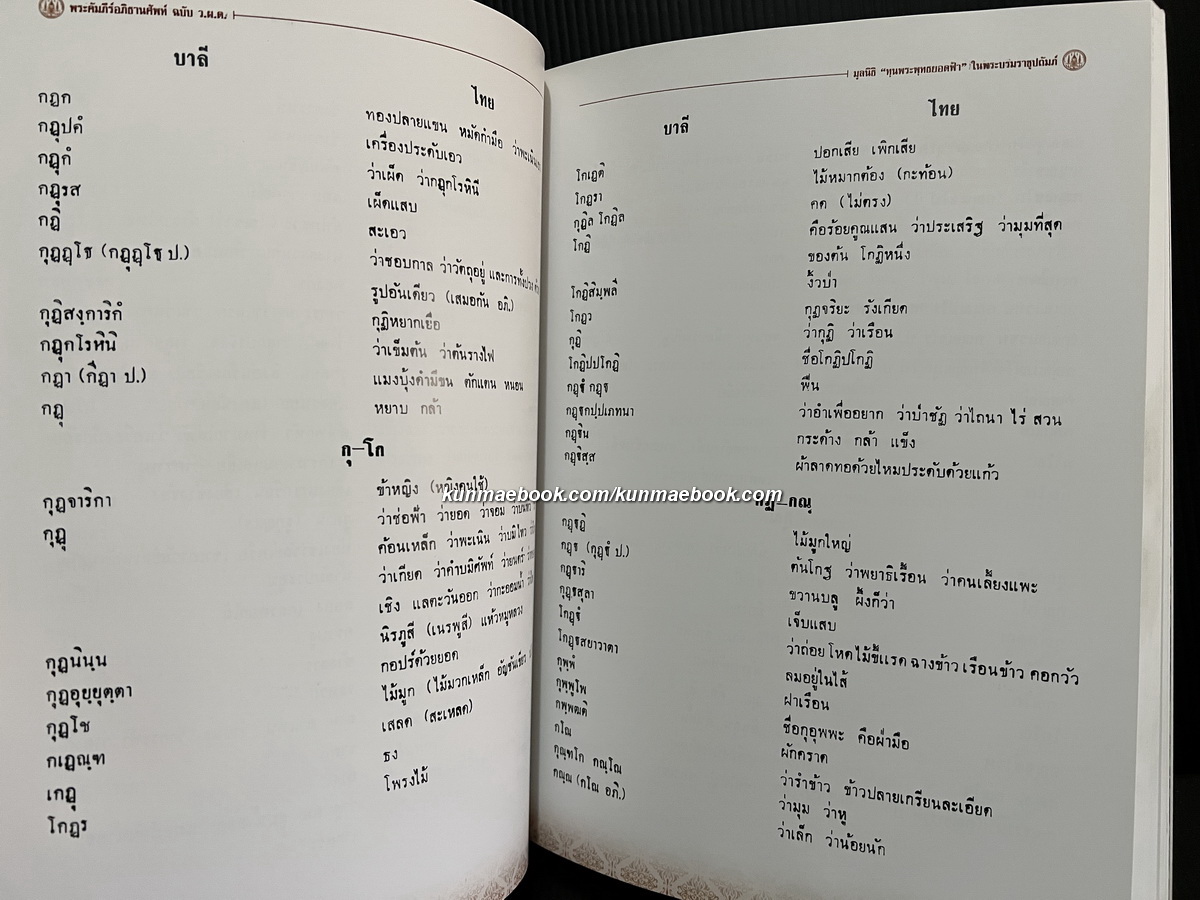 พระคัมภีร์อภิธานศัพท์ ฉบับ ว.ผ.ต.
บาลี
ไทย
กฏก
ทองปลายแขน หมัดกำมือ
กฏุปคํ
เครื่องประดับเอว
กฏุกํ
ว่าเผ็ด ว่ากฏุกโรหินี
กฏุรส
เผ็ดแสบ
กฏิ
สะเอว
ว่าชอบกาล ว่าวัตถุอยู่
รูปอันเดียว (เสมอกัน อภิ.)
กุฏิสงฺการิกํ
กุฏิหยากเยื่อ
กฏุกโรหินิ
ว่าเข็มต้น ว่าต้นรางไฟ
กฏา (กีฏา ป.)
แมงบุ้งคำมีขน ตักแตน หนอน
กฏุ
หยาบ กล้า
กุ–โก
กุฏจาริกา
ข้าหญิง (หญิงคนใช้)
กุฏุ
ว่าช่อฟ้า ว่ายอด ว่าจอม
ค้อนเหล็ก ว่าพะเนิน
ว่าเกียด ว่าคำบมิศัพท์
เชิง แลตะวันออก
นิรภูสี (เนรพูสี) แห้วหมูหลวง
กุฏนินฺน
กอปร์ด้วยยอด
กุฏอุยฺยุตฺตา
ไม้มูก (ไม้มวกเหล็ก
กุฏโช
เสลด (สะเหลด)
กเฏณฺฑ
ธง
เกฏุ
โพรงไม้
โกฏร
มูลนิธิ “ทุนพระพุทธยอดฟ้า” ในพระบรมราชูปถัมภ์
บาลี
ไทย
ปอกเสีย เพิกเสีย
โกเฏติ
ไม้หมากต้อง (กะท้อน)
โกฏรา
คด (ไม่ตรง)
กุฏิล โกฏิล
คือร้อยคูณแสน ว่าประเสริฐ ว่ามุมที่สุด
โกฏิ
ของต้น โกฏิหนึ่ง
งิ้วป่า
โกฏิสิมฺพลี
กุฏจริยะ รังเกียด
โกฏว
ว่ากุฏิ ว่าเรือน
กุฏิ
ชื่อโกฏิปโกฏิ
โกฏิปปโกฏิ
พื้น
ว่าอำเพื่ออยาก ว่าป่าชัฏ ว่าไถนา ไร่ สวน
กฏฺฐกปฺปเภทนา
กระด้าง กล้า แข็ง
กฏฺฐิน
ผ้าลาดทอด้วยไหมประดับด้วยแก้ว
กฏฺฐิสฺส
kunmaebook.com/kunmaebook.com
ไม้มูกใหญ่
ต้นโกฐ ว่าพยาธิเรื้อน ว่าคนเลี้ยงแพะ
ขวานบลู ผึ้งก็ว่า
เจ็บแสบ
ว่าถ่อย โหดไม้ขี้แรด ฉางข้าว เรือนข้าว คอกวัว
ลมอยู่ในไส้
ฝาเรือน
ชื่อกุอุพพะ คือผ่ามือ
ผักคราด
กโณ
ว่ารำข้าว ข้าวปลายเกรียนละเอียด
กุณฺฑโก กณฺโณ
ว่ามุม ว่าหู
กณฺณ (กโณ อภิ.)
ว่าเล็ก ว่าน้อยนัก